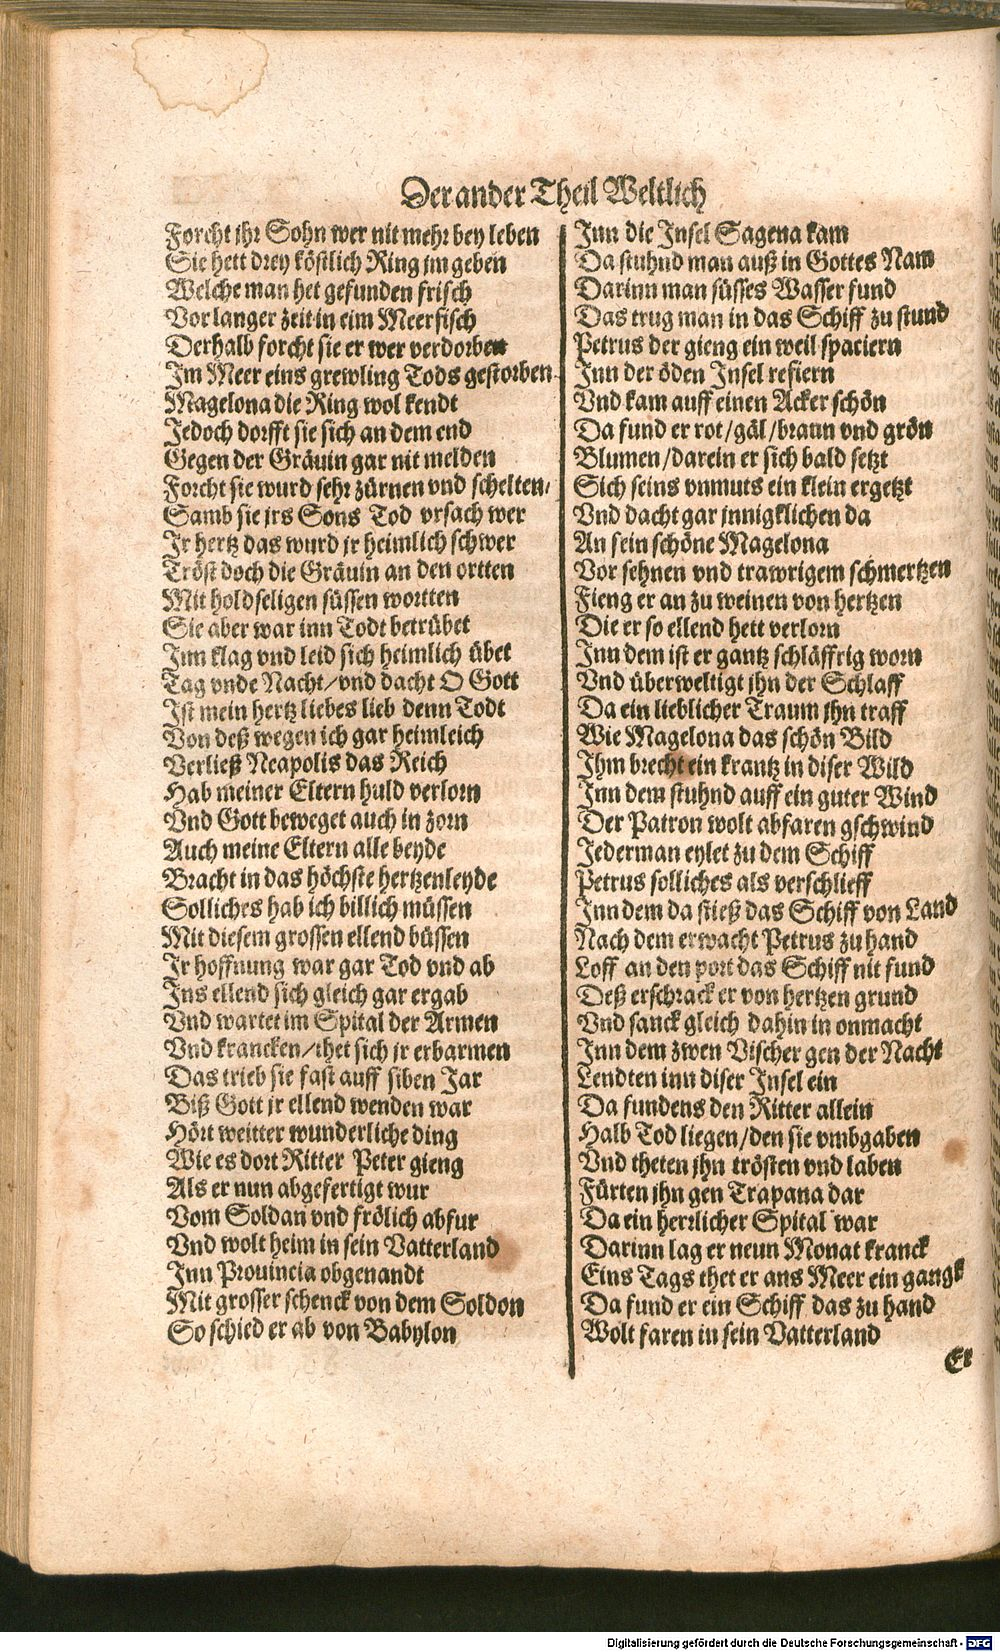 Der ander Theil Weltlich
Forcht jhr Sohn wer nit mehr bey leben
Sie hett drey köstlich Ring jm geben
Welche man het gefunden frisch
Vor langer zeit in eim Meerfisch
Derhalb forcht sie er wer verdorben
Im Meer eins grewling Tods gestorben
Magelona die Ring wol kendt
Jedoch dorfft sie sich an dem end
Gegen der Gräuin gar nit melden
Forcht sie wurd sehr zürnen vnd schelten/
Samb sie jrs Sons Tod vrsach wer
Ir hertz das wurd jr heimlich schwer
Tröst doch die Gräuin an den ortten
Mit holdseligen süssen wortten
Sie aber war inn Todt betrübet
Inn klag vnd leid sich heimlich übet
Tag vnde Nacht/vnd dacht O Gott
Ist mein hertz liebes lieb denn Todt
Von deß wegen ich gar heimleich
Verließ Neapolis das Reich
Hab meiner Eltern huld verlorn
Vnd Gott beweget auch in zorn
Auch meine Eltern alle beyde
Bracht in das höchste hertzenleyde
Solliches hab ich billich müssen
Mit diesem grossen ellend büssen
Ir hoffnung war gar Tod vnd ab
Ins ellend sich gleich gar ergab
Vnd wartet im Spital der Armen
Vnd krancken/thet sich jr erbarmen
Das trieb sie fast auff siben Jar
Biß Gott jr ellend wenden war
Hört weitter wunderliche ding
Wie es dort Ritter Peter gieng
Als er nun abgefertigt wur
Vom Soldan vnd frölich abfur
Vnd wolt heim in sein Vatterland
Inn Prouincia obgenandt
Mit grosser schenck von dem Soldon
So schied er ab von Babylon
Inn die Insel Sagena kam
Da stuhnd man auß in Gottes Nam
Darinn man süsses Wasser fund
Das trug man in das Schiff zu stund
Petrus der gieng ein weil spaciern
Inn der öden Insel refiern
Vnd kam auff einen Acker schön
Da fund er rot/gäl/braun vnd grön
Blumen/darein er sich bald setzt
Sich seins vnmuts ein klein ergetzt
Vnd dacht gar jnnigklichen da
An sein schöne Magelona
Vor sehnen vnd trawrigem schmertzen
Fieng er an zu weinen von hertzen
Die er so ellend hett verlorn
Inn dem ist er gantz schläffrig worn
Vnd überweltigt jhn der Schlaff
Da ein lieblicher Traum jhn traff
Wie Magelona das schön Bild
Ihm brecht ein krantz in diser Wild
Inn dem stuhnd auff ein guter Wind
Der Patron wolt abfaren gschwind
Jederman eylet zu dem Schiff
Petrus solliches als verschlieff
Inn dem da stieß das Schiff von Land
Nach dem erwacht Petrus zu hand
Loff an den port das Schiff nit fund
Deß erschrack er von hertzen grund
Vnd sanck gleich dahin in onmacht
Inn dem zwen Vischer gen der Nacht
Lendten inn diser Insel ein
Da fundens den Ritter allein
Halb Tod liegen/den sie vmbgaben
Vnd theten jhn trösten vnd laben
Fürten jhn gen Trapana dar
Da ein herrlicher Spital war
Darinn lag er neun Monat kranck
Eins Tags thet er ans Meer ein gangk
Da fund er ein Schiff das zu hand
Wolt faren in sein Vatterland
Er
Digitalisierung gefördert durch die Deutsche Forschungsgemeinschaft - DFG